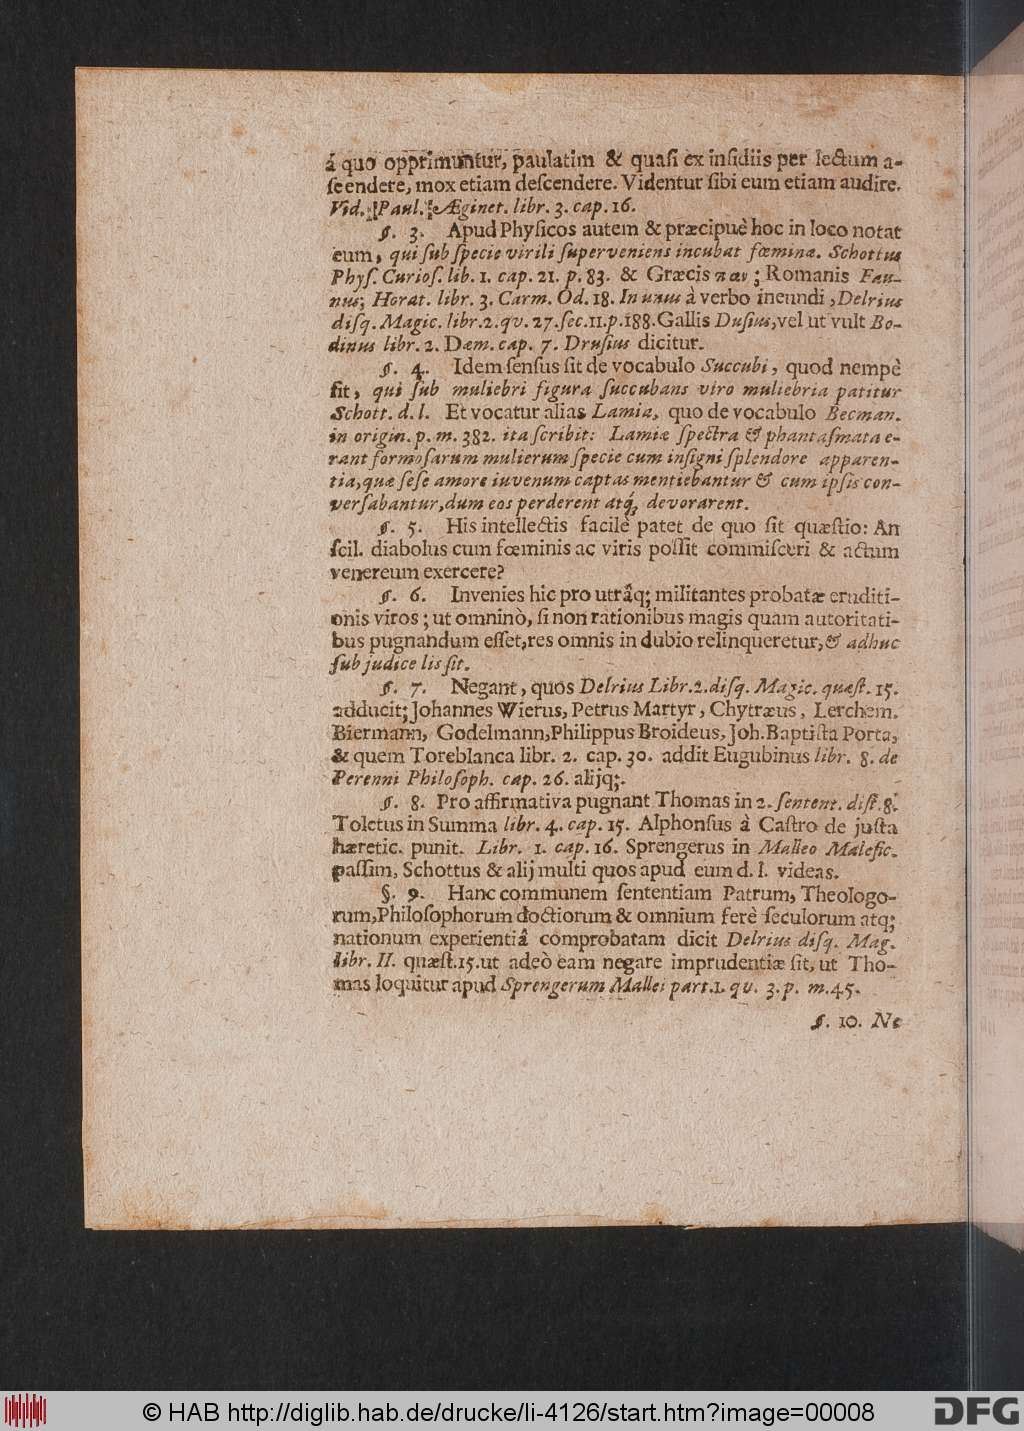 á quo opprimuntur, paulatim & quaſi ex inſidiis per lectum a-
ſcendere, mox etiam deſcendere. Videntur ſibi eum etiam audire.
Vid. Paul. Æginet. libr. 3. cap. 16.
§. 3. Apud Phyſicos autem & præcipuè hoc in loco notat
eum, qui ſub ſpecie virili ſuperveniens incubat fœminæ. Schottus
Phyſ. Curioſ. lib. 1. cap. 21. p. 83. & Græcis παν; Romanis Fau-
nus; Horat. libr. 3. Carm. Od. 18. Inuus à verbo ineundi, Delrius
diſq. Magic. libr. 2. qv. 27. ſec. 11. p. 188. Gallis Duſius, vel ut vult Bo-
dinus libr. 2. Dæm. cap. 7. Druſius dicitur.
§. 4. Idem ſenſus ſit de vocabulo Succubi, quod nempè
ſit, qui ſub muliebri figura ſuccubans viro muliebria patitur
Schott. d. l. Et vocatur aliàs Lamia, quo de vocabulo Becman.
in origin. p. m. 382. ita ſcribit: Lamiæ ſpectra & phantaſmata e-
rant formoſarum mulierum ſpecie cum inſigni ſplendore apparen-
tia, quæ ſeſe amore iuvenum captas mentiebantur & cum ipſis con-
verſabantur, dum eos perderent atq́; devorarent.
§. 5. His intellectis facilè patet de quo ſit quæſtio: An
ſcil. diabolus cum fœminis ac viris poſſit commiſceri & actum
venereum exercere?
§. 6. Invenies hic pro utrâq; militantes probatæ eruditi-
onis viros; ut omninò, ſi non rationibus magis quam autoritati-
bus pugnandum eſſet, res omnis in dubio relinqueretur, & adhuc
ſub judice lis ſit.
§. 7. Negant, quos Delrius Libr. 2. diſq. Magic. quæſt. 15.
adducit; Johannes Wierus, Petrus Martyr, Chytræus, Lerchem.
Biermann, Godelmann, Philippus Broideus, Joh. Baptiſta Porta,
& quem Toreblanca libr. 2. cap. 30. addit Eugubinus libr. 8. de
Perenni Philoſoph. cap. 26. alijq;.
§. 8. Pro affirmativa pugnant Thomas in 2. ſentent. diſt. 8.
Toletus in Summa libr. 4. cap. 15. Alphonſus à Caſtro de juſta
hæretic. punit. Libr. 1. cap. 16. Sprengerus in Malleo Malefic.
paſſim, Schottus & alij multi quos apud eum d. l. videas.
§. 9. Hanc communem ſententiam Patrum, Theologo-
rum, Philoſophorum doctiorum & omnium ferè ſeculorum atq;
nationum experientiâ comprobatam dicit Delrius diſq. Mag.
libr. II. quæſt. 15. ut adeò eam negare imprudentiæ ſit, ut Tho-
mas loquitur apud Sprengerum Mallei part. 1. qv. 3. p. m. 45.
§. 10. Ne
© HAB http://diglib.hab.de/drucke/li-4126/start.htm?image=00008
DFG